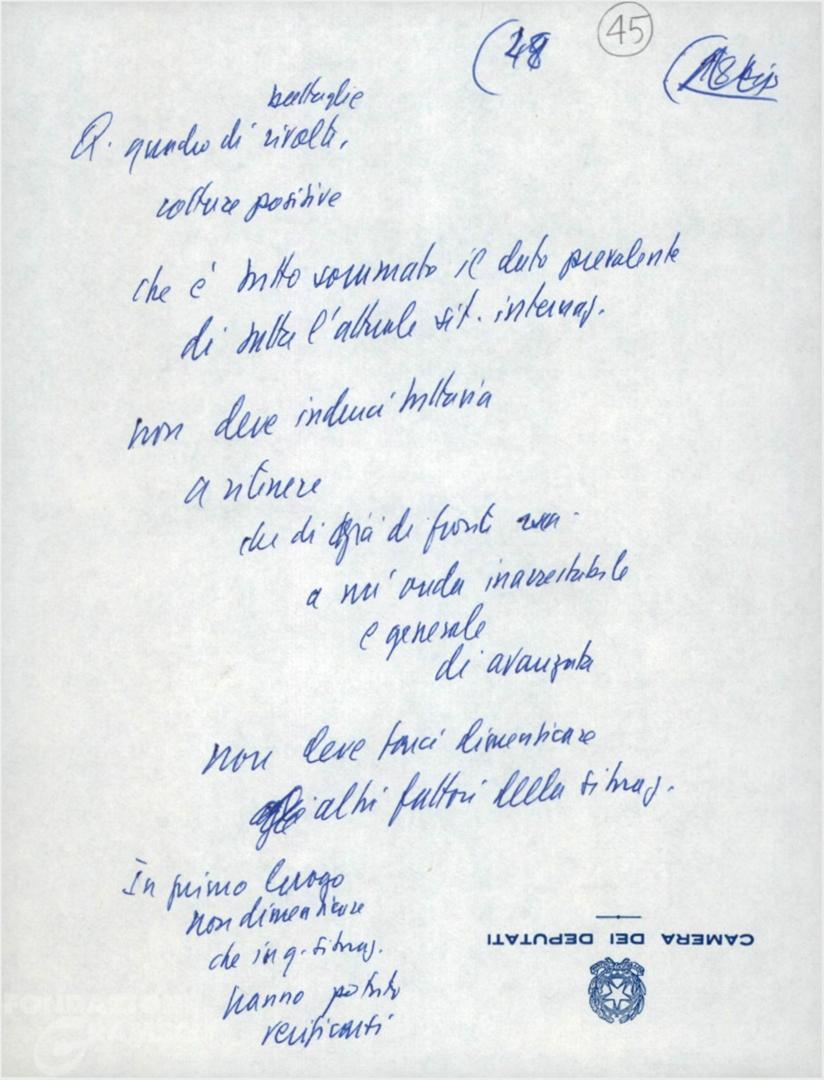 (28
45
battaglie
Q. quadro di rivolte,
rotture positive
che è tutto sommato il dato prevalente
di tutta l'attuale sit. internaz.
non deve indurci tuttavia
a ritenere
che di già di fronte
a un'onda inarrestabile
e generale
di avanzata
non deve farci dimenticare
altri fattori della situaz.
In primo luogo
non dimenticare
che in q. situaz.
hanno potuto
verificarsi
CAMERA DEI DEPUTATI